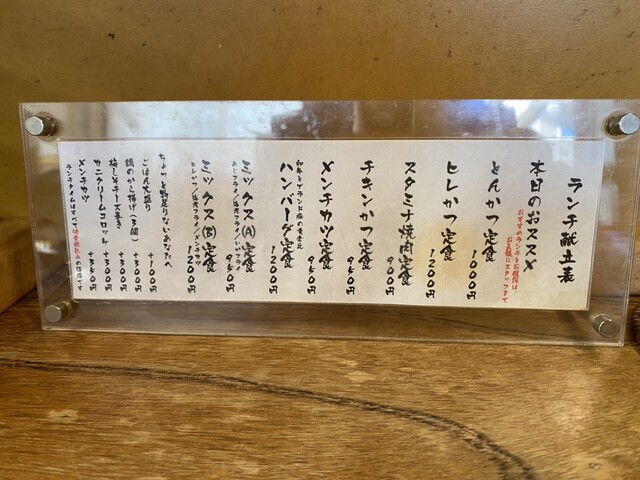 ランチ献立表
本日のおススメ
おすすめランチをお得度は
お気軽にスタッフまで
とんかつ定食
1000円
ヒレかつ定食
1200円
スタミナ焼肉定食
900円
チキンかつ定食
950円
メンチカツ定食
950円
和牛とブランド豚の黄金比
ハンバーグ定食
1200円
ミックス(A)定食
950円
ミックス(B)定食
1200円
ちょっと物足りないあなたへ
ごはん大盛り
+100円
鶏のから揚げ(3個)
+300円
梅しそチーズ巻き
+300円
カニクリームコロッケ
+300円
メンチカツ
+350円
ランチタイムはすべて消費税込みの価格です